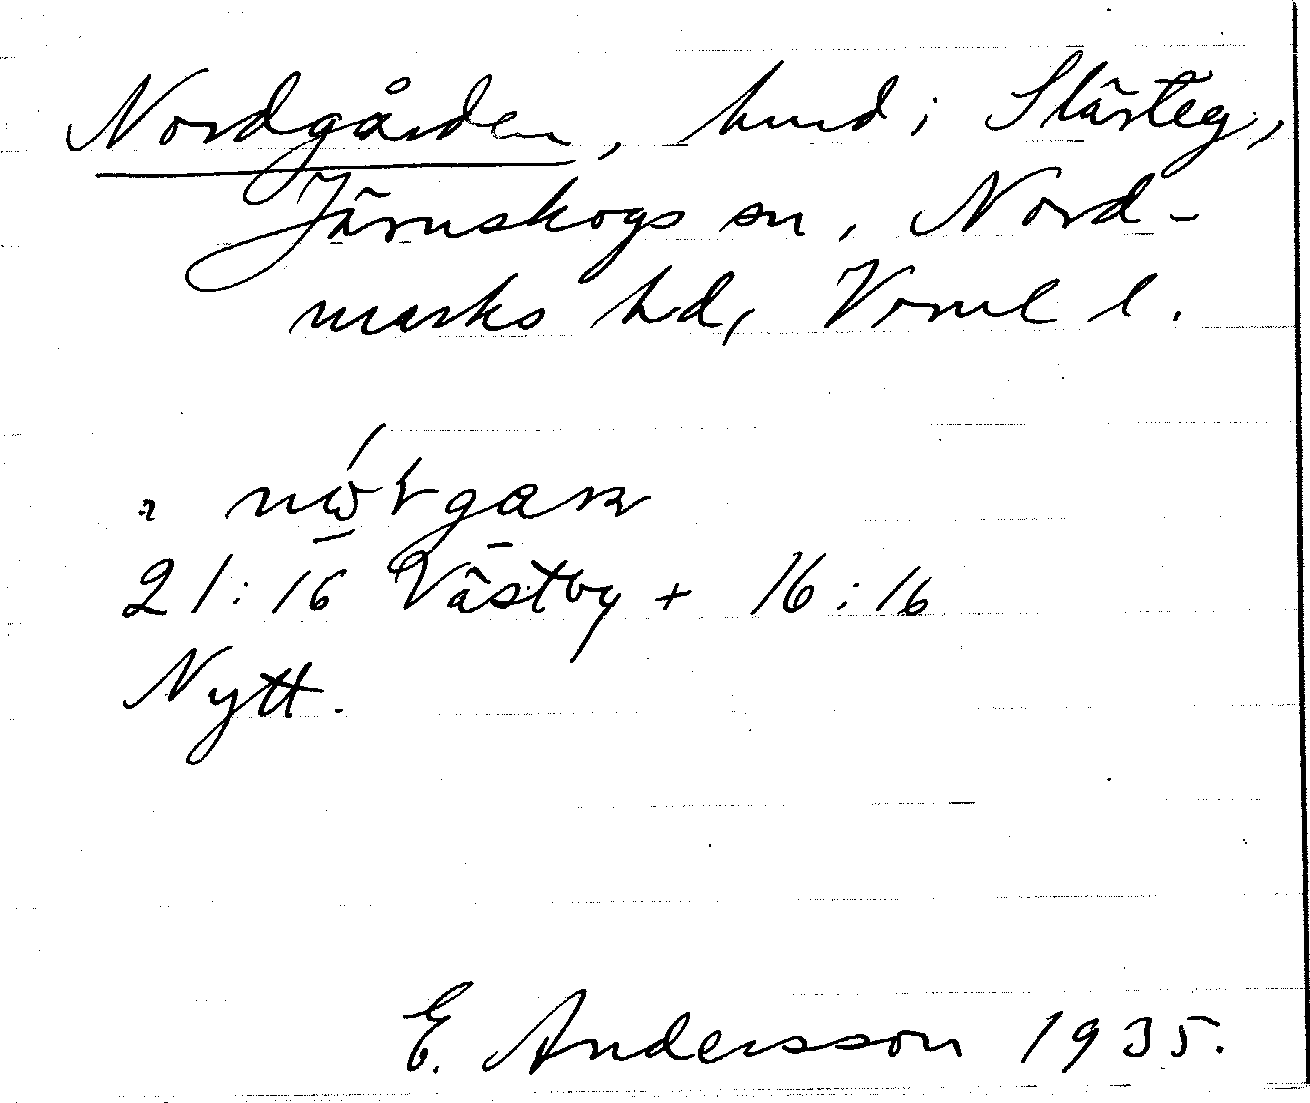 Nordgården, hmd i Slärteg,
Järnskogs sn, Nord-
marks hd, Vrml l.
21:16 Västby + 16:16
Nytt.
E. Andersson 1935.